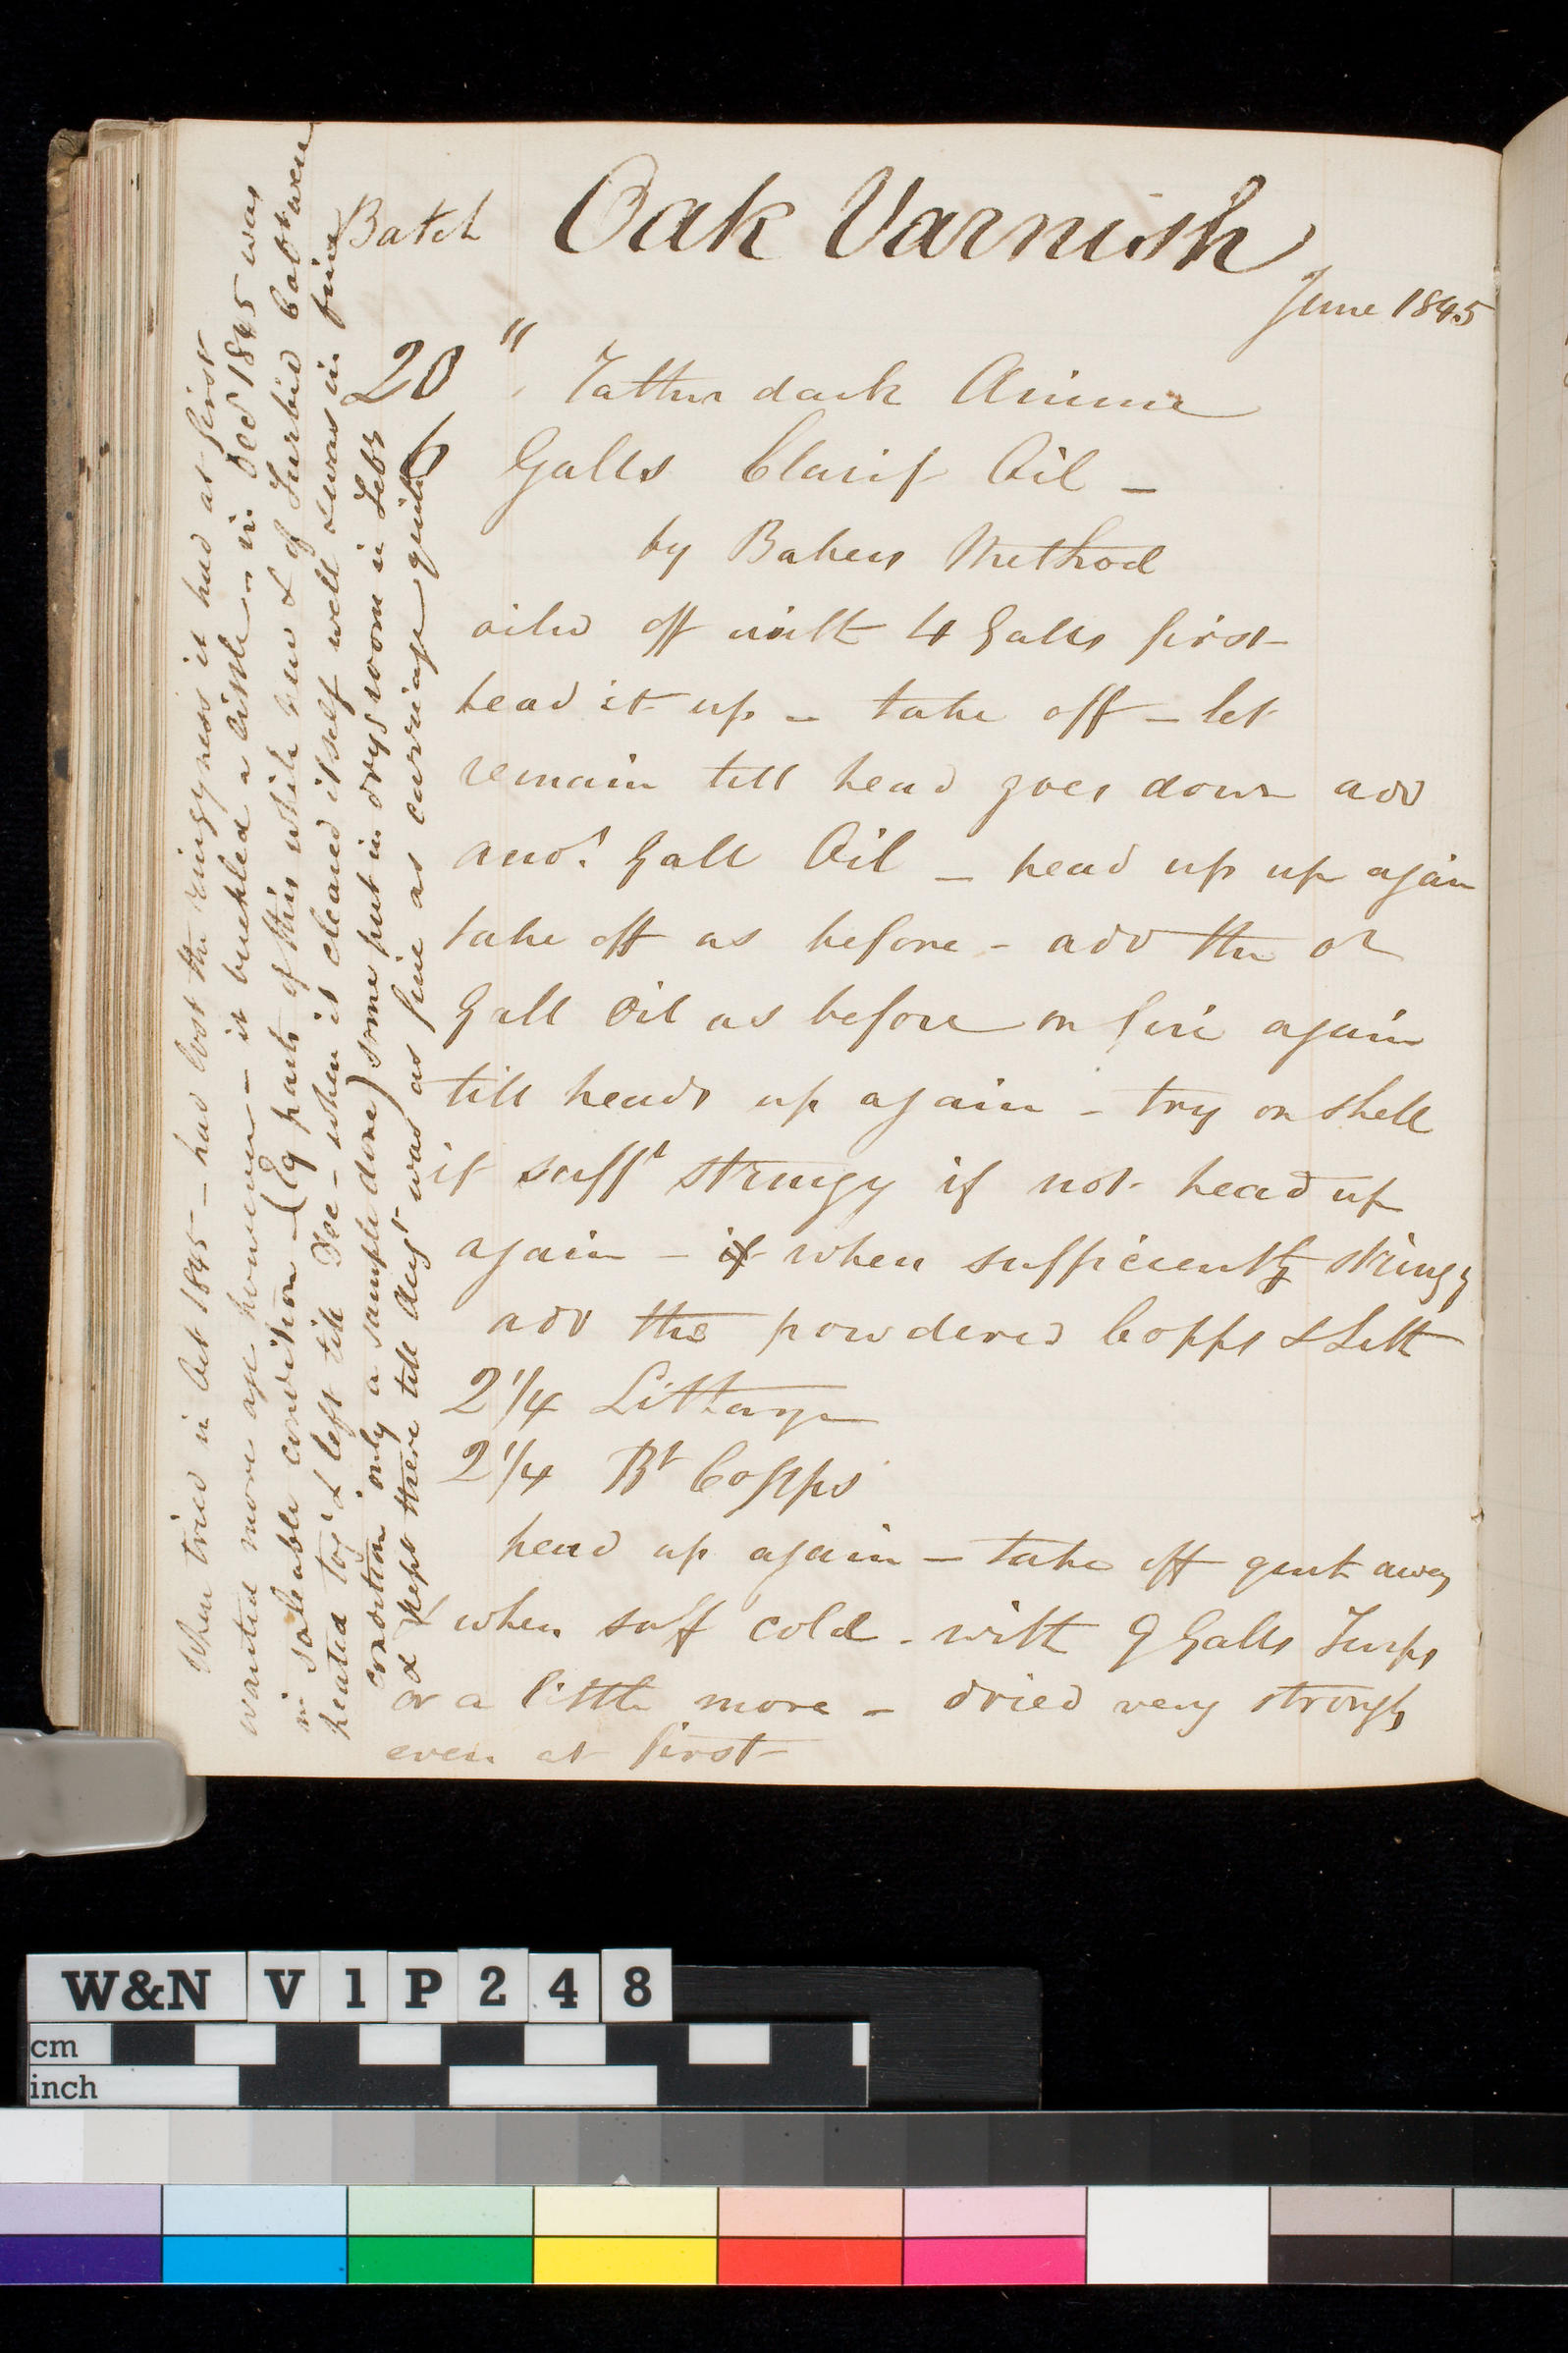 Batch Oak Varnish
June 1845
20 " rather dark Anime
6 Galls Clarif Oil –
by Bakers Method
oiled off with 4 Galls first
head it up – take off – let
remain till head goes down add
anor. Gall Oil – head up up again
take off as before – add the or
Gall Oil as before on fire again
till heads up again – try on shell
if sufft stringy if not head up
again – if when sufficiently stringy
add the powdered Copps & Lith
2 1/4 Litharge
2 1/4 Bt Copps
head up again – take off quick away
when suff cold – with 9 Galls Turps
or a little more – dried very strongly
even at first
When tried in Oct 1845 – had lost the stringyness it had at first
wanted more age however – it buckled a little – in Decr 1845 was
in saleable condition – (Eq parts of this while new & of Turbid Cabt were
heated togr & left till Dec – when it cleared itself well & was in fine
condition only a sample done) some put in drys room in Febr
& kept there till Augt was as fine as carriage quite
W&N V1P248
cm
inch